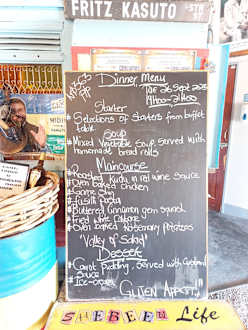 FRITZ KASUTO
5TH ST
Dinner Menu
Tue 26 Sept 2023
19h00-21h00
Starter
#Selections of Starters from buffet table
Soup
#Mixed Vegetable Soup Served with homemade bread rolls
Maincourse
#Roasted Kudu in red wine sauce
#Oven baked chicken
#Fusilli pasta
#Buttered Cinnamon gem squash
#Oven baked Rosemary potatoes
"Valley of Salad"
Dessert
Pudding, Served with Custard Sauce
#Ice-cream
GUTEN Appetit!
SHEBEEN Life